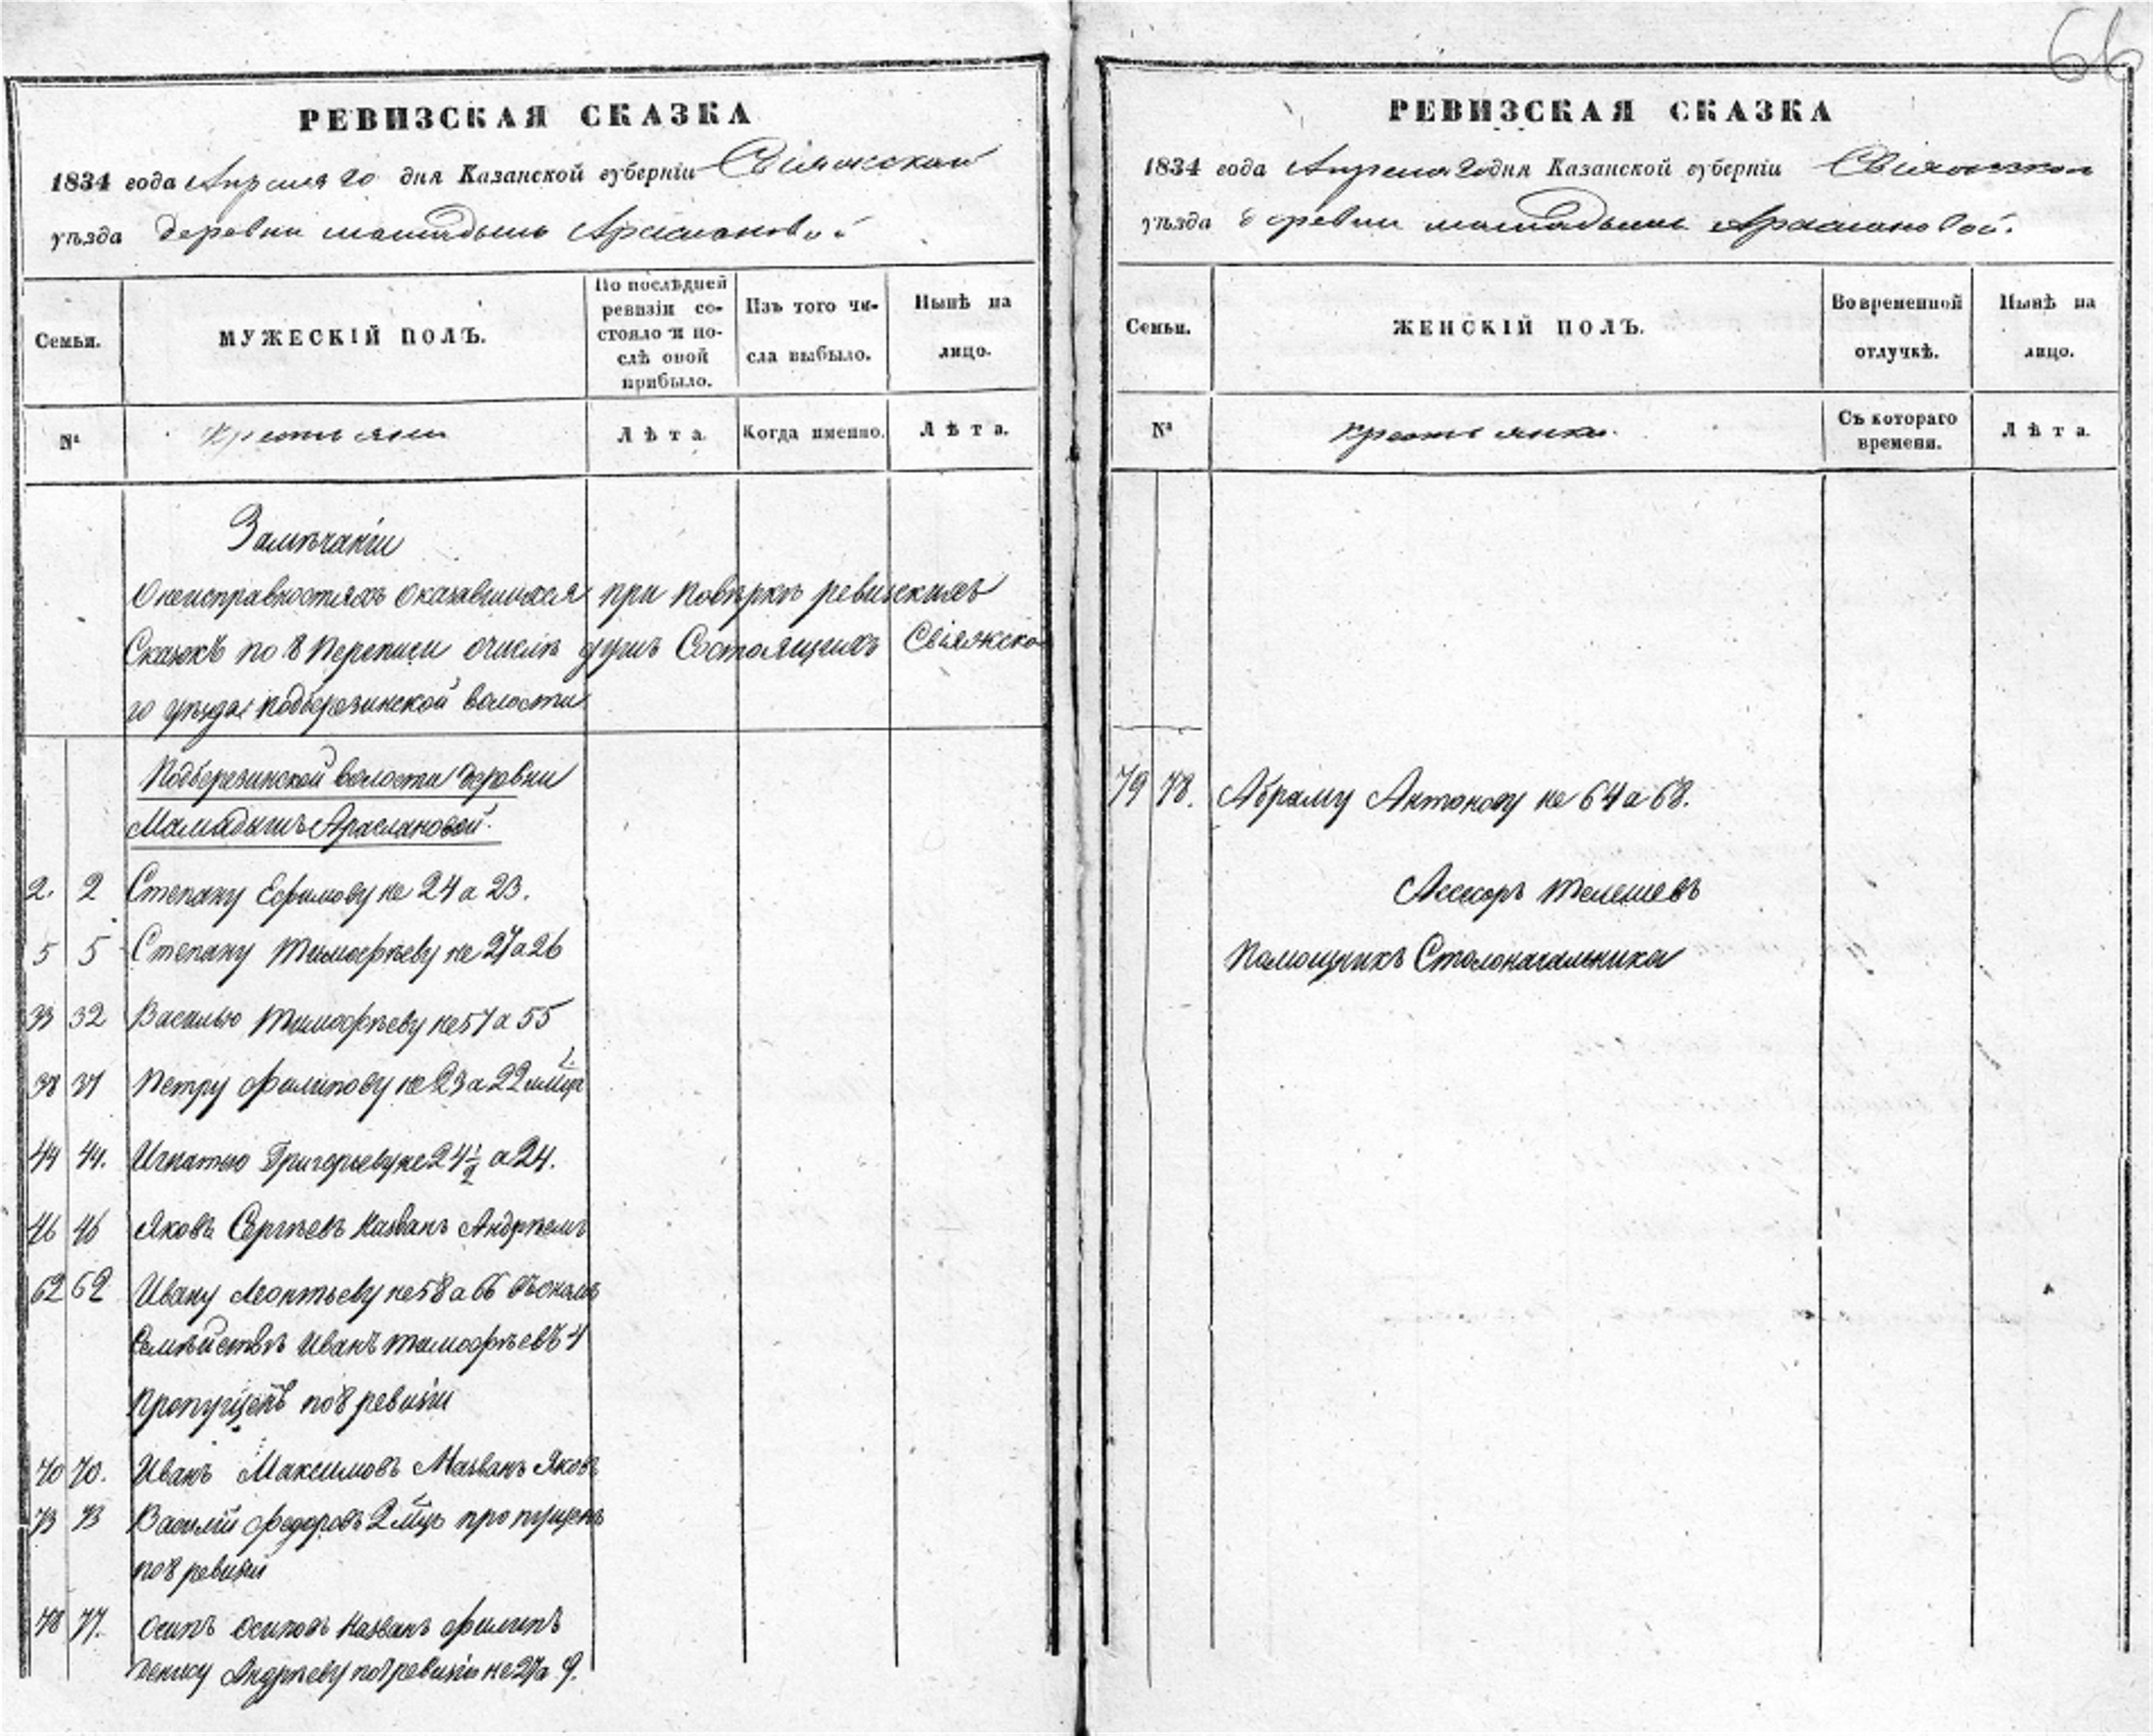 66
РЕВИЗСКАЯ СКАЗКА
1834 года Апреля 20 дня Казанской губерніи Свіяжской
уѣзда деревни мамадышь Араслановой
Семьи.
МУЖЕСКІЙ ПОЛЪ.
По послѣдней ревизіи состояло и послѣ оной прибыло.
Изъ того числа выбыло.
Нынѣ на лицо.
№
Крестьяни
Лѣта.
Когда именно.
Лѣта.
Замѣчаніи
О неисправностяхъ оказавшихся при повѣркѣ ревизскихъ
Сказокъ по 8 переписи очислѣ душъ Состоящихъ Свіяжско
го уѣзда подберезинской волости
Подберезинской волости деревни
Мамадышъ Араслановой.
2. 2 Степану Ефимову не 24 а 23.
5 5 Степану Тимофѣеву не 27 а 26
33 32 Василью Тимофѣеву не 57 а 55
38 37 Петру Филипову не 23 а 22
44 44. Игнатью Григорьеву не 24 1/2 а 24.
46 46 Яковъ Сергѣевъ названъ Андрѣемъ
62 62 Ивану Леонтьеву не 58 а 66
Семѣйствѣ Иванъ тимофѣевъ 4
пропущенъ по 8 ревизіи
70 70. Иванъ Максимовъ Названъ Яковъ
73 73 Василій Федоровъ 2 мцъ пропущенъ
по 8 ревизіи
78 77. Осипъ Осиповъ названъ Филипъ
Денису Андрѣеву по 7 ревизіи не 27 а 9.
РЕВИЗСКАЯ СКАЗКА
1834 года Апреля 20 дня Казанской губерніи Свіяжской
уѣзда деревни мамадышь Араслановой.
Семьи.
ЖЕНСКІЙ ПОЛЪ.
Во временной отлучкѣ.
Нынѣ на лицо.
№
Крестьянки.
Съ котораго времени.
Лѣта.
79 78. Абраму Антонову не 64 а 68.
Асесоръ Телешевъ
Помощникъ Столоначальника